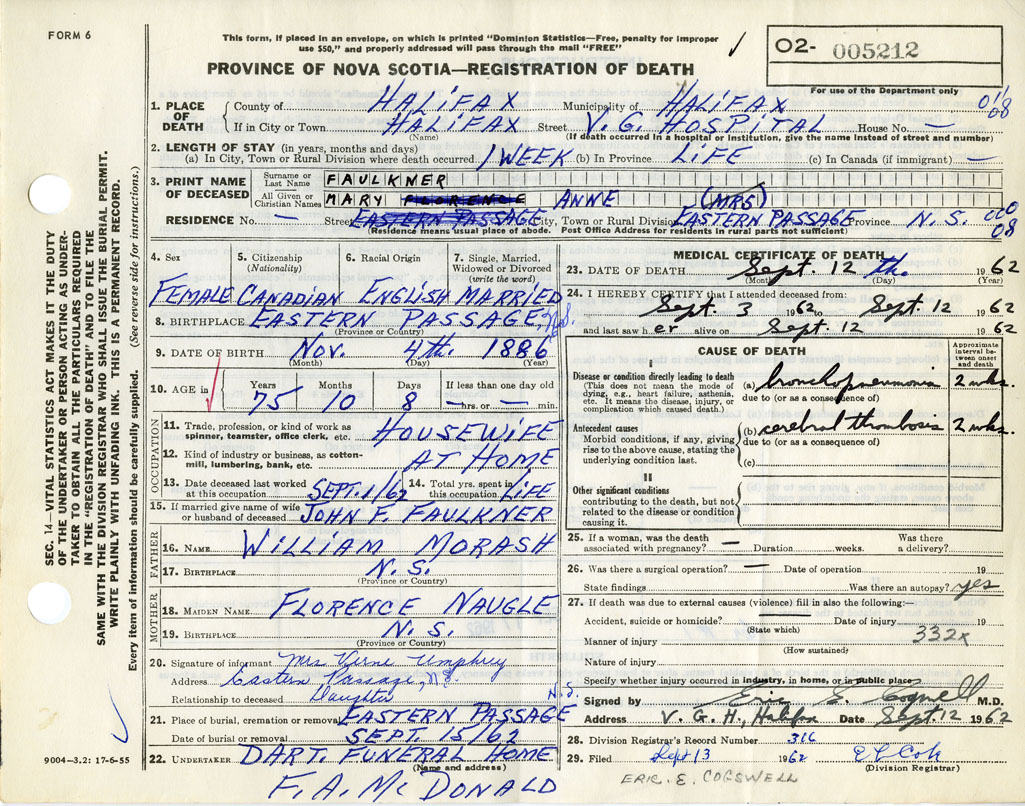 FORM 6
This form, if placed in an envelope, on which is printed "Dominion Statistics—Free, penalty for improper
use $50," and properly addressed will pass through the mail "FREE"
PROVINCE OF NOVA SCOTIA—REGISTRATION OF DEATH
O2- 005212
For use of the Department only
SEC. 14—VITAL STATISTICS ACT MAKES IT THE DUTY
OF THE UNDERTAKER OR PERSON ACTING AS UNDER-
TAKER TO OBTAIN ALL THE PARTICULARS REQUIRED
IN THE "REGISTRATION OF DEATH" AND TO FILE THE
SAME WITH THE DIVISION REGISTRAR WHO SHALL ISSUE THE BURIAL PERMIT.
WRITE PLAINLY WITH UNFADING INK. THIS IS A PERMANENT RECORD.
Every item of information should be carefully supplied. (See reverse side for instructions.)
1. PLACE OF DEATH County of HALIFAX Municipality of HALIFAX
If in City or Town HALIFAX Street V. G. HOSPITAL House No. —
08
(Name) (If death occurred in a hospital or institution, give the name instead of street and number)
2. LENGTH OF STAY (in years, months and days)
(a) In City, Town or Rural Division where death occurred 1 WEEK (b) In Province LIFE (c) In Canada (if immigrant) —
3. PRINT NAME OF DECEASED Surname or Last Name FAULKNER
All Given or Christian Names MARY FLORENCE ANNE (MRS)
RESIDENCE No. — Street EASTERN PASSAGE City, Town or Rural Division EASTERN PASSAGE Province N. S. 000
08
(Residence means usual place of abode. Post Office Address for residents in rural parts not sufficient)
4. Sex 5. Citizenship (Nationality) 6. Racial Origin 7. Single, Married, Widowed or Divorced (write the word)
FEMALE CANADIAN ENGLISH MARRIED
8. BIRTHPLACE EASTERN PASSAGE, N.S.
(Province or Country)
9. DATE OF BIRTH NOV. 4th. 1886
(Month) (Day) (Year)
10. AGE in Years Months Days If less than one day old
75 10 8 — hrs. or — min.
OCCUPATION
11. Trade, profession, or kind of work as
spinner, teamster, office clerk, etc. HOUSEWIFE
12. Kind of industry or business, as cotton-
mill, lumbering, bank, etc. AT HOME
13. Date deceased last worked at this occupation SEPT. 1/62 14. Total yrs. spent in this occupation LIFE
15. If married give name of wife
or husband of deceased JOHN F. FAULKNER
FATHER
16. NAME WILLIAM MORASH
17. BIRTHPLACE N. S.
(Province or Country)
MOTHER
18. MAIDEN NAME FLORENCE NAUGLE
19. BIRTHPLACE N. S.
(Province or Country)
20. Signature of informant Mrs Verne Umphrey
Address Eastern Passage, N.S.
Relationship to deceased Daughter N.S.
21. Place of burial, cremation or removal EASTERN PASSAGE
Date of burial or removal SEPT. 15/62
22. UNDERTAKER DART. FUNERAL HOME
(Name and address)
F. A. McDONALD
9004—3.2: 17-6-55
MEDICAL CERTIFICATE OF DEATH
23. DATE OF DEATH Sept. 12 th. 1962
(Month) (Day) (Year)
24. I HEREBY CERTIFY that I attended deceased from:
Sept. 3 1962 to Sept. 12 1962
and last saw her alive on Sept. 12 1962
CAUSE OF DEATH
Approximate interval between onset and death
I
Disease or condition directly leading to death
(This does not mean the mode of
dying, e.g., heart failure, asthenia,
etc. It means the disease, injury, or
complication which caused death.)
(a) bronchopneumonia 2 wks.
due to (or as a consequence of)
Antecedent causes
Morbid conditions, if any, giving
rise to the above cause, stating the
underlying condition last.
(b) cerebral thrombosis 2 wks.
due to (or as a consequence of)
(c)
II
Other significant conditions
contributing to the death, but not
related to the disease or condition
causing it.
25. If a woman, was the death associated with pregnancy? — Duration weeks. Was there a delivery?
26. Was there a surgical operation? — Date of operation 19
State findings Was there an autopsy? yes
27. If death was due to external causes (violence) fill in also the following:—
Accident, suicide or homicide? Date of injury 19
(State which)
Manner of injury 332x
(How sustained)
Nature of injury
Specify whether injury occurred in industry, in home, or in public place
Signed by Eric E. Cogswell M.D.
Address V. G. H., Halifax Date Sept. 12 1962
28. Division Registrar's Record Number 316
29. Filed Sept 13 1962
(Division Registrar)
ERIC. E. COGSWELL